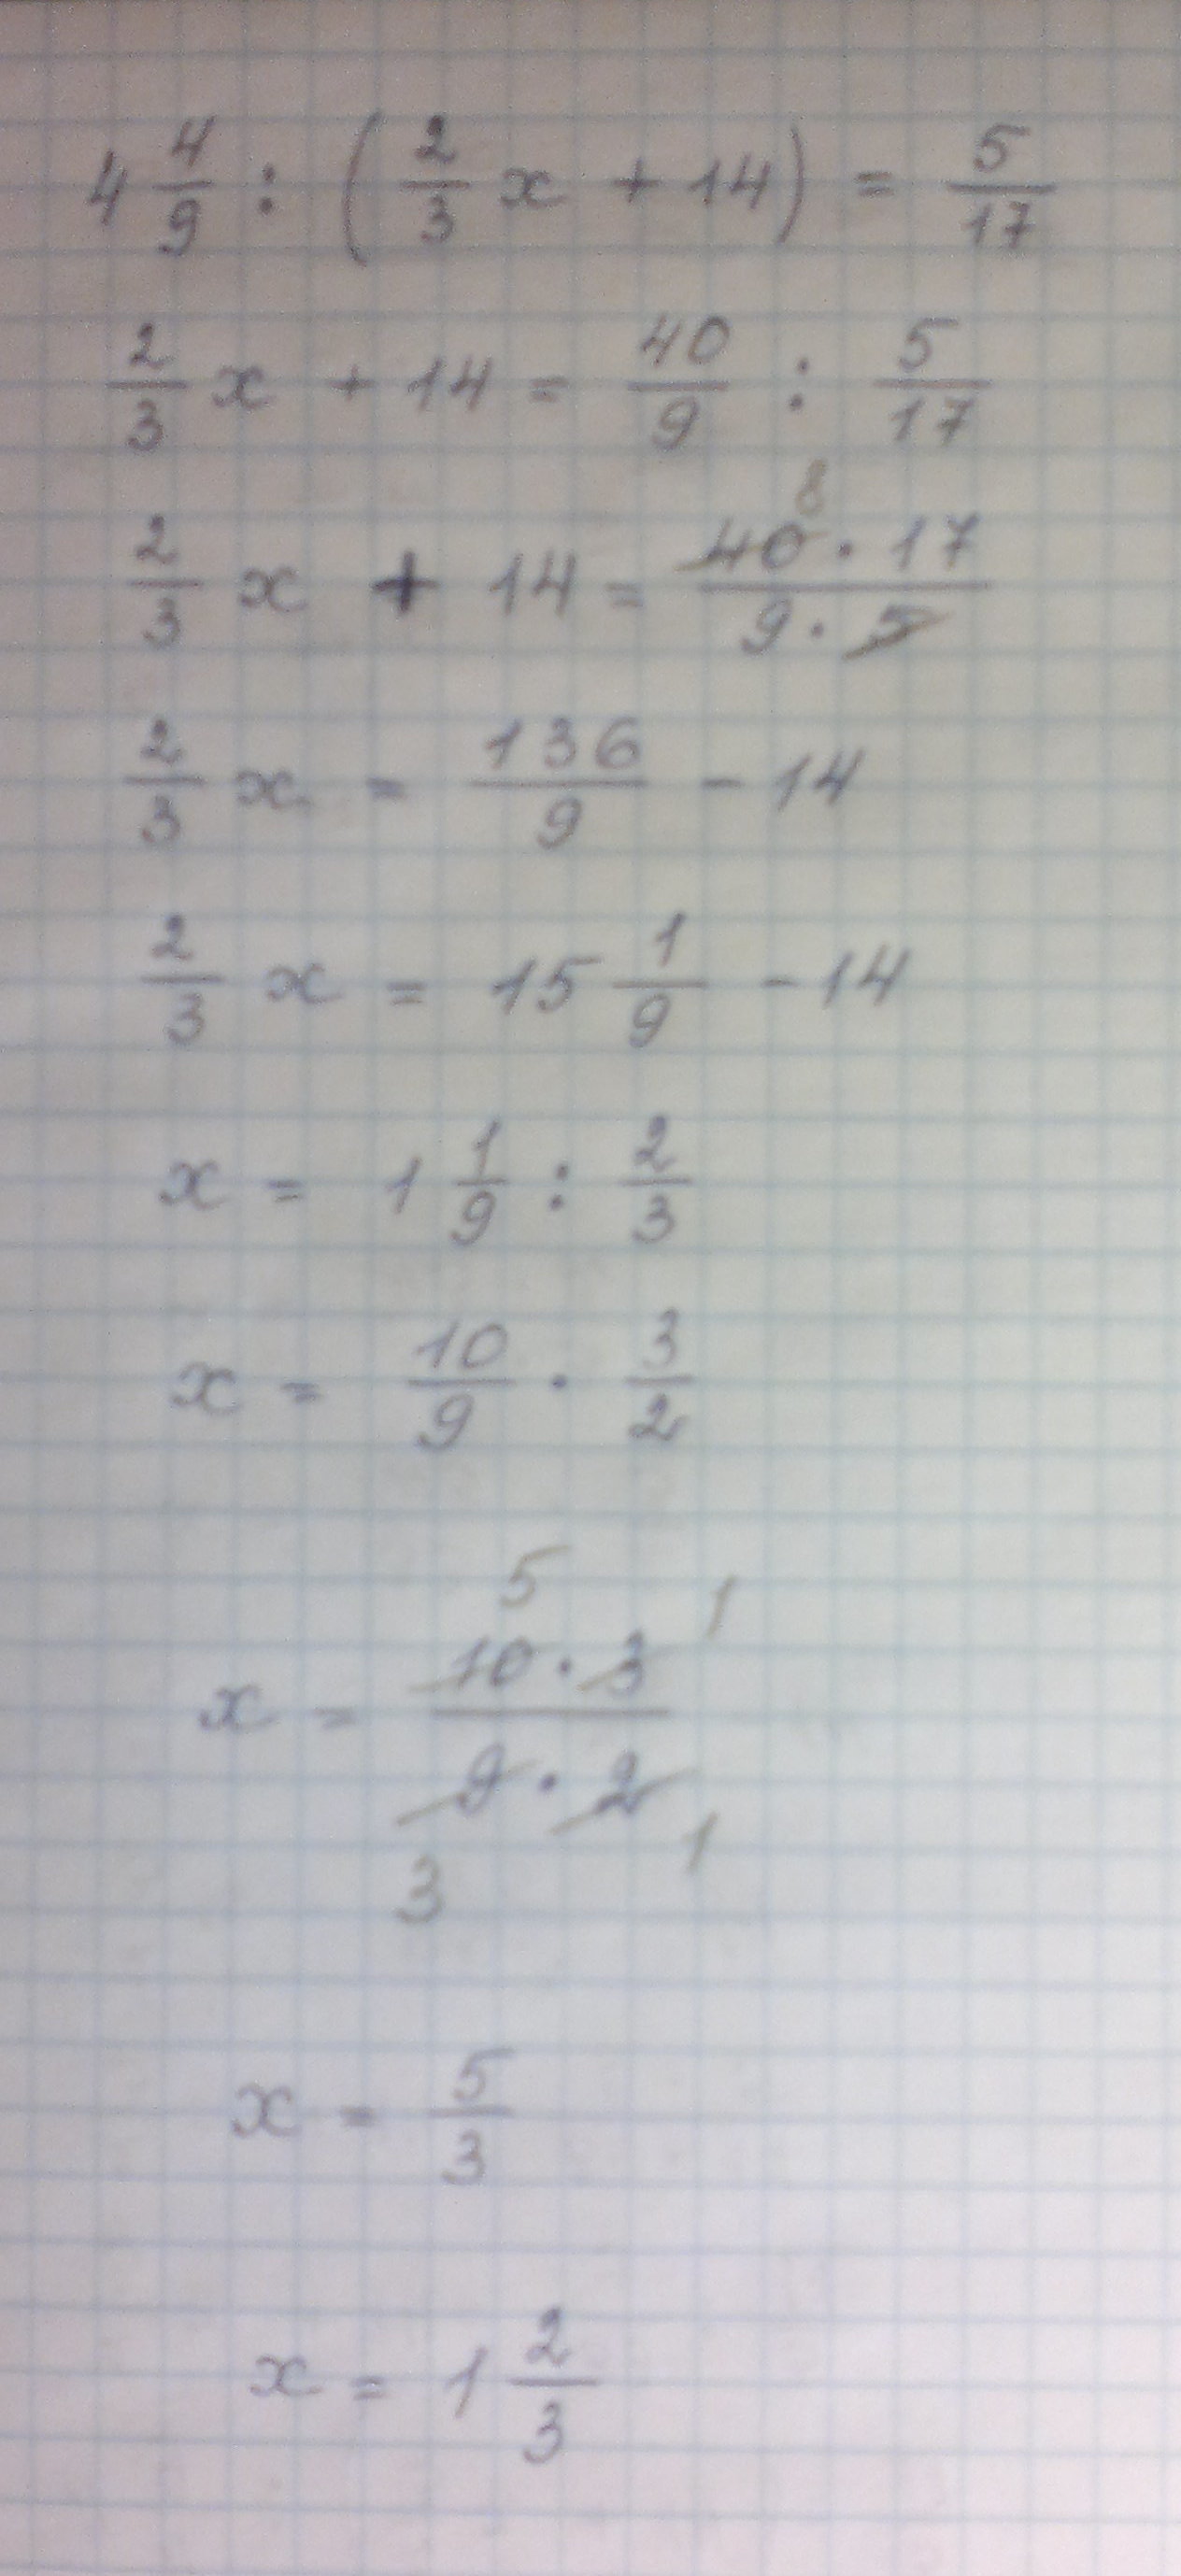 4 4/9 : (2/3 x + 14) = 5/17
2/3 x + 14 = 40/9 : 5/17
8
2/3 x + 14 = 40 · 17 / 9 · 5
2/3 x = 136/9 - 14
2/3 x = 15 1/9 - 14
x = 1 1/9 : 2/3
x = 10/9 · 3/2
5 1
x = 10 · 3 / 9 · 2
3 1
x = 5/3
x = 1 2/3